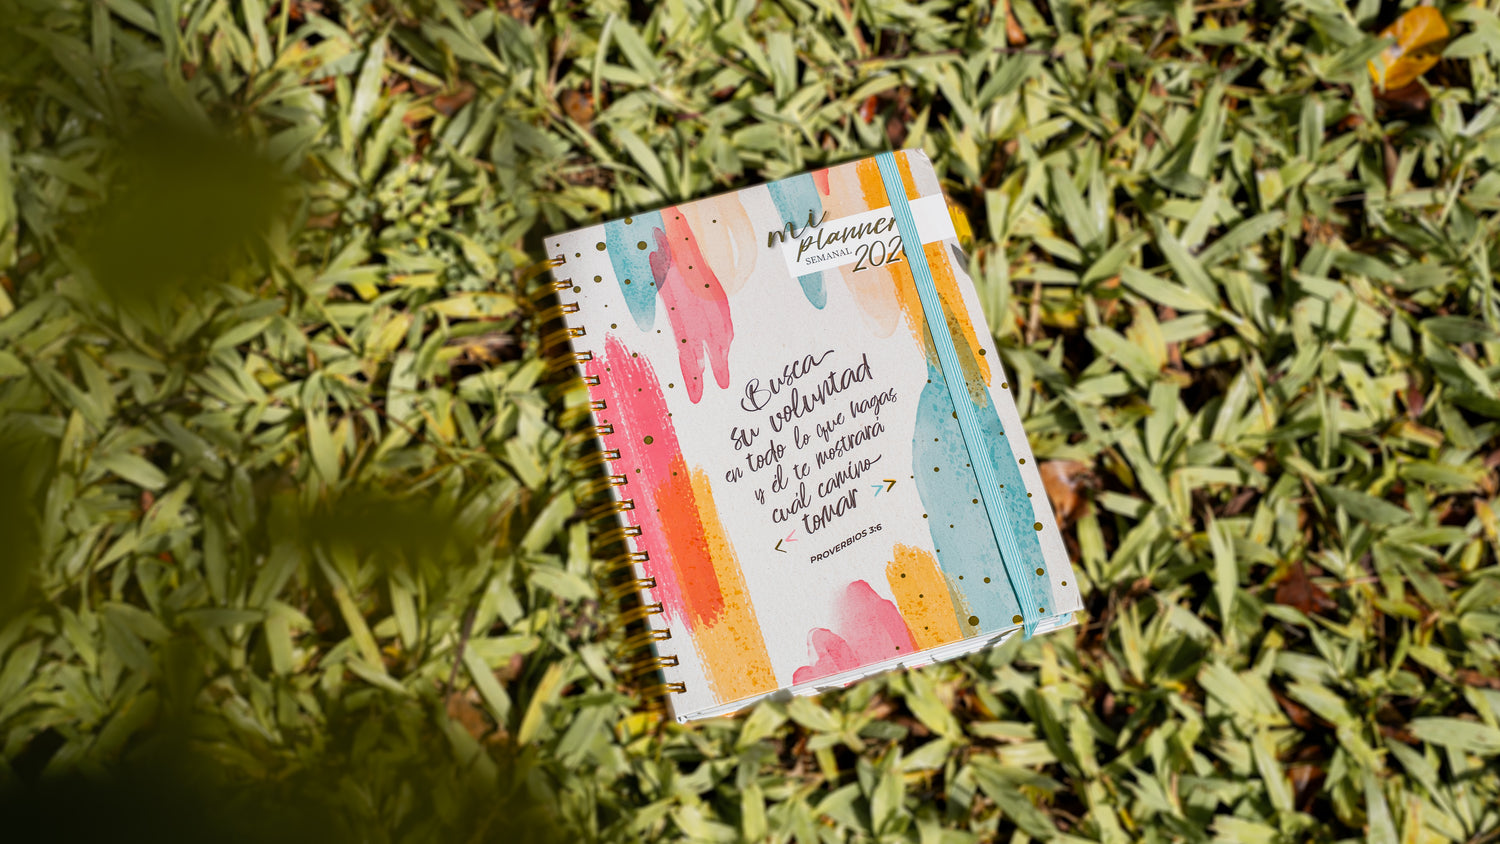 mi
planner
SEMANAL 202
Busca
su voluntad
en todo lo que hagas
y él te mostrará
cuál camino
tomar
PROVERBIOS 3:6